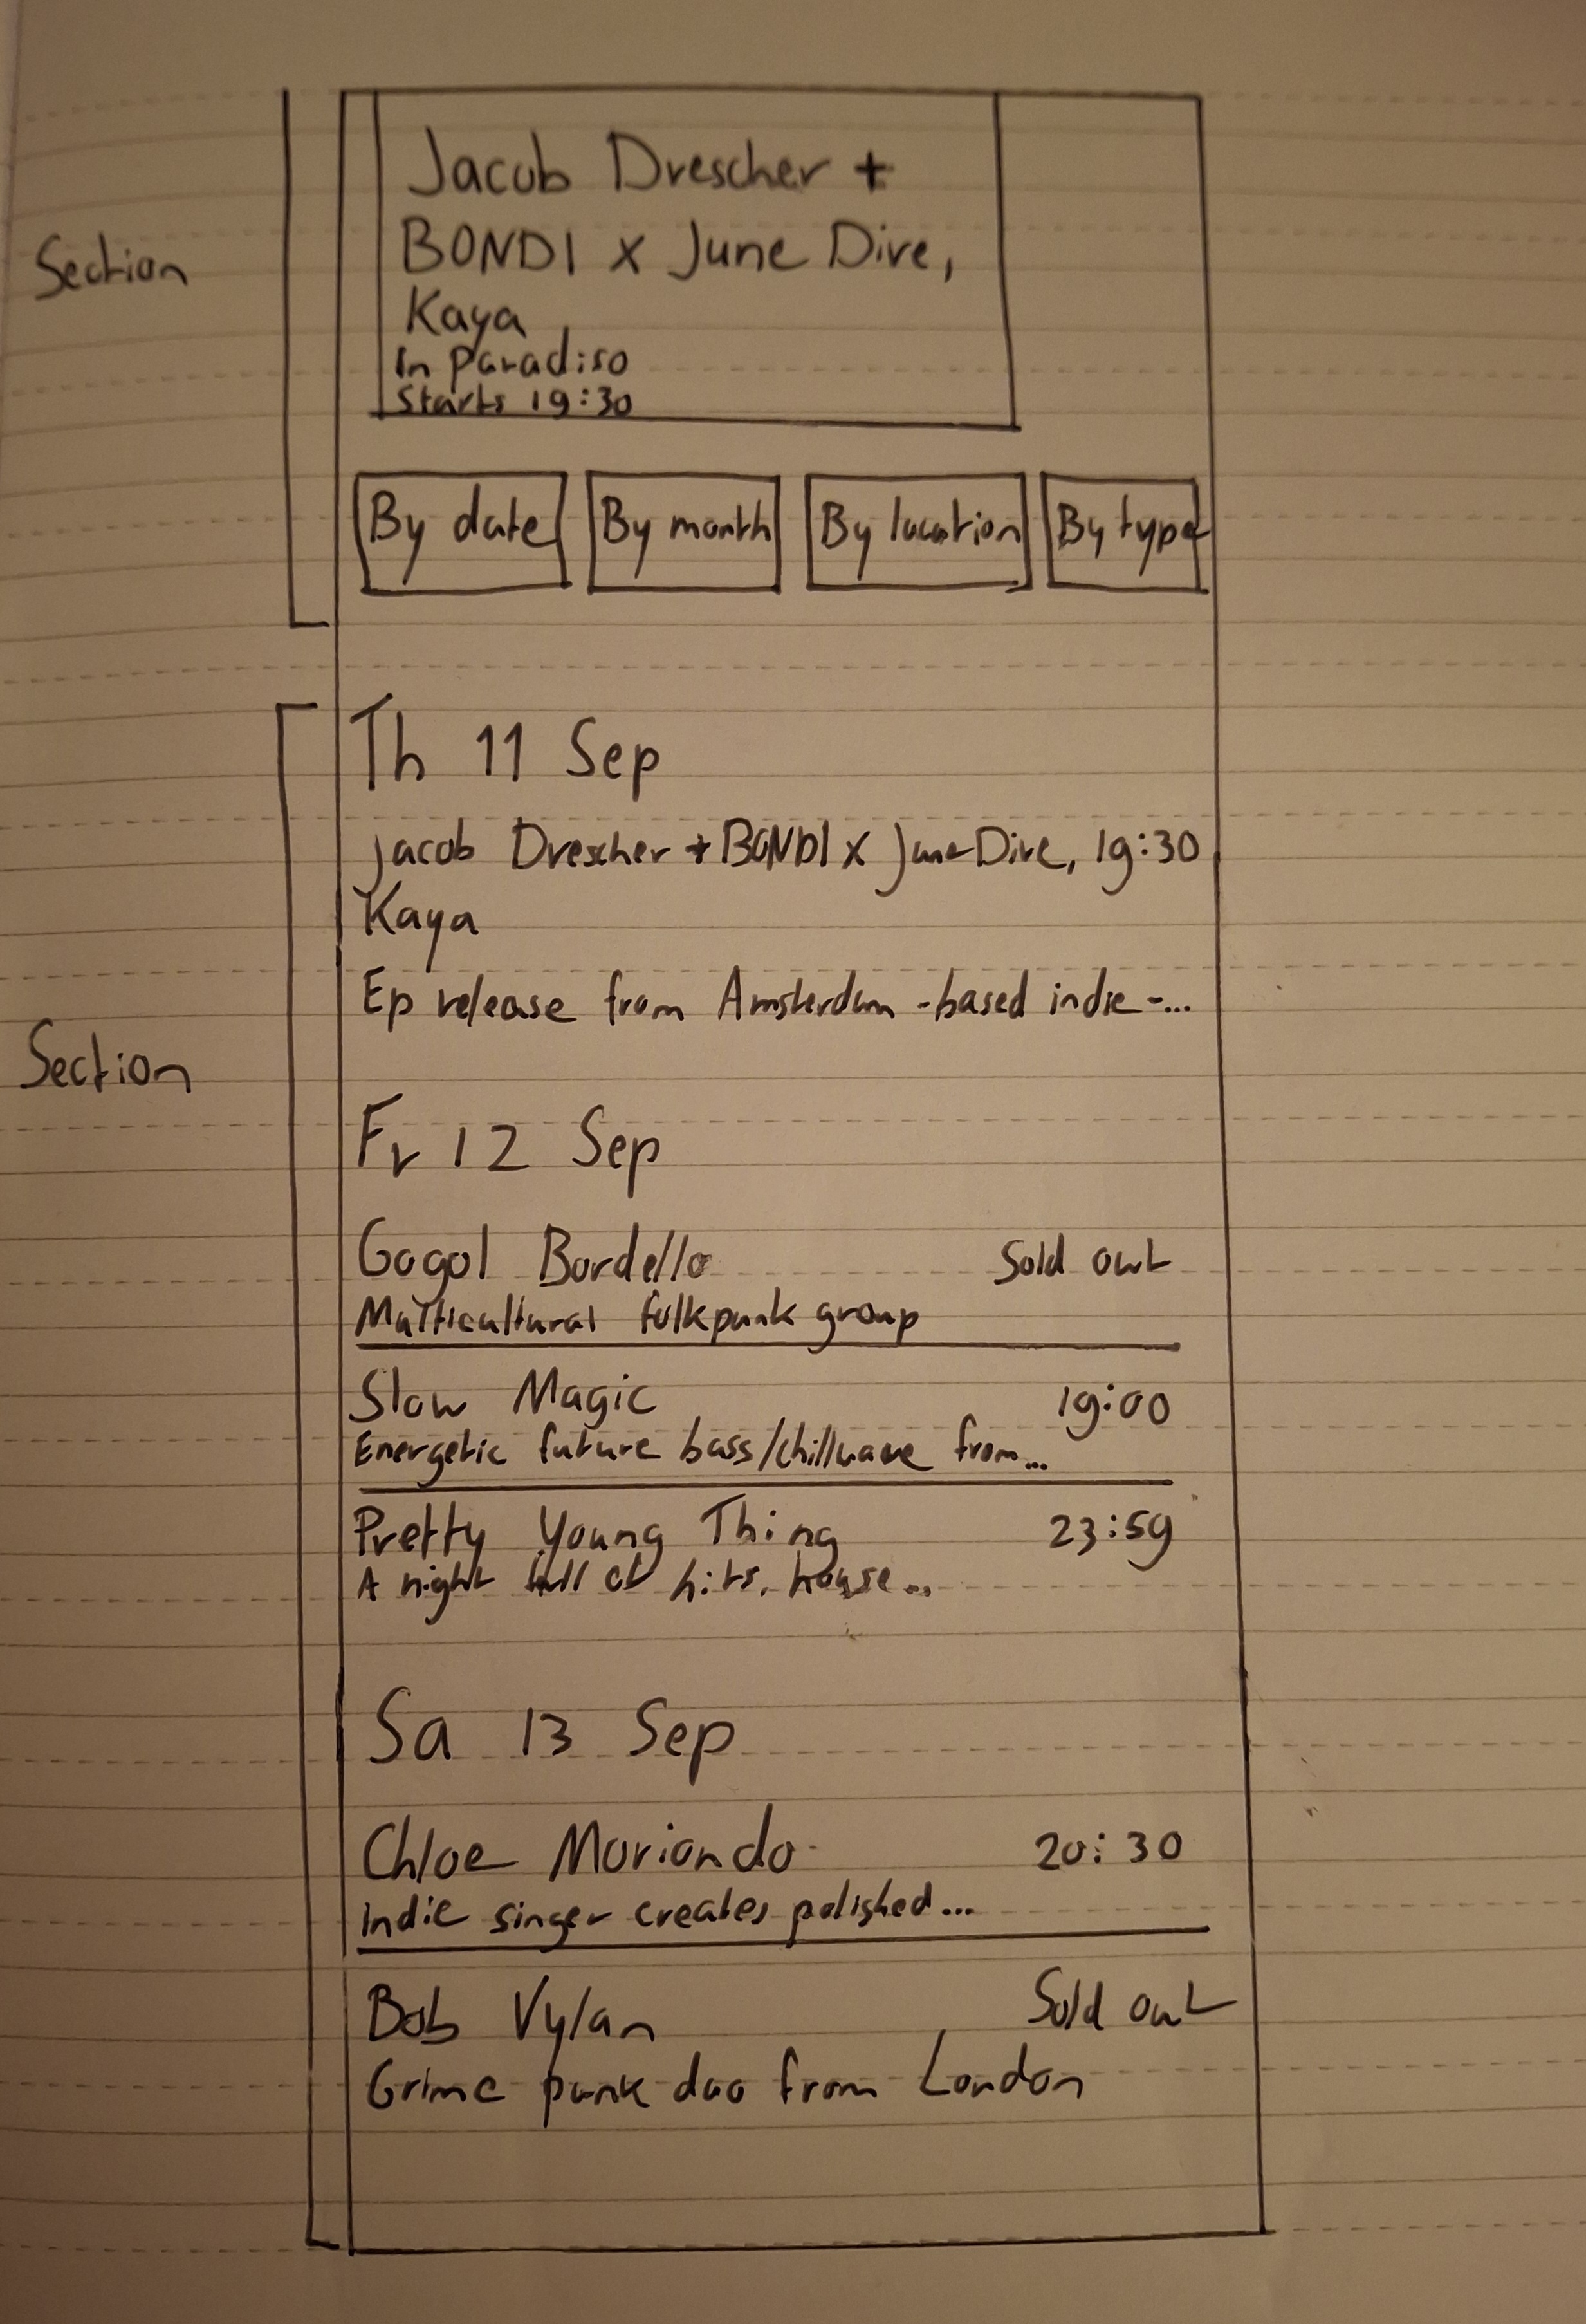 Jacob Drescher +
BONDI x June Dive,
Kaya
In Paradiso
Starts 19:30
Section
By date By month By location By type
Th 11 Sep
Jacob Drescher + BONDI x June Dive, 19:30
Kaya
Ep release from Amsterdam-based indie-...
Section
Fr 12 Sep
Gogol Bordello Sold out
Multicultural folkpunk group
Slow Magic 19:00
Energetic future bass/chillwave from...
Pretty Young Thing 23:59
A night full of hits, house...
Sa 13 Sep
Chloe Moriondo 20:30
Indie singer creates polished...
Bob Vylan Sold out
Grime punk duo from London